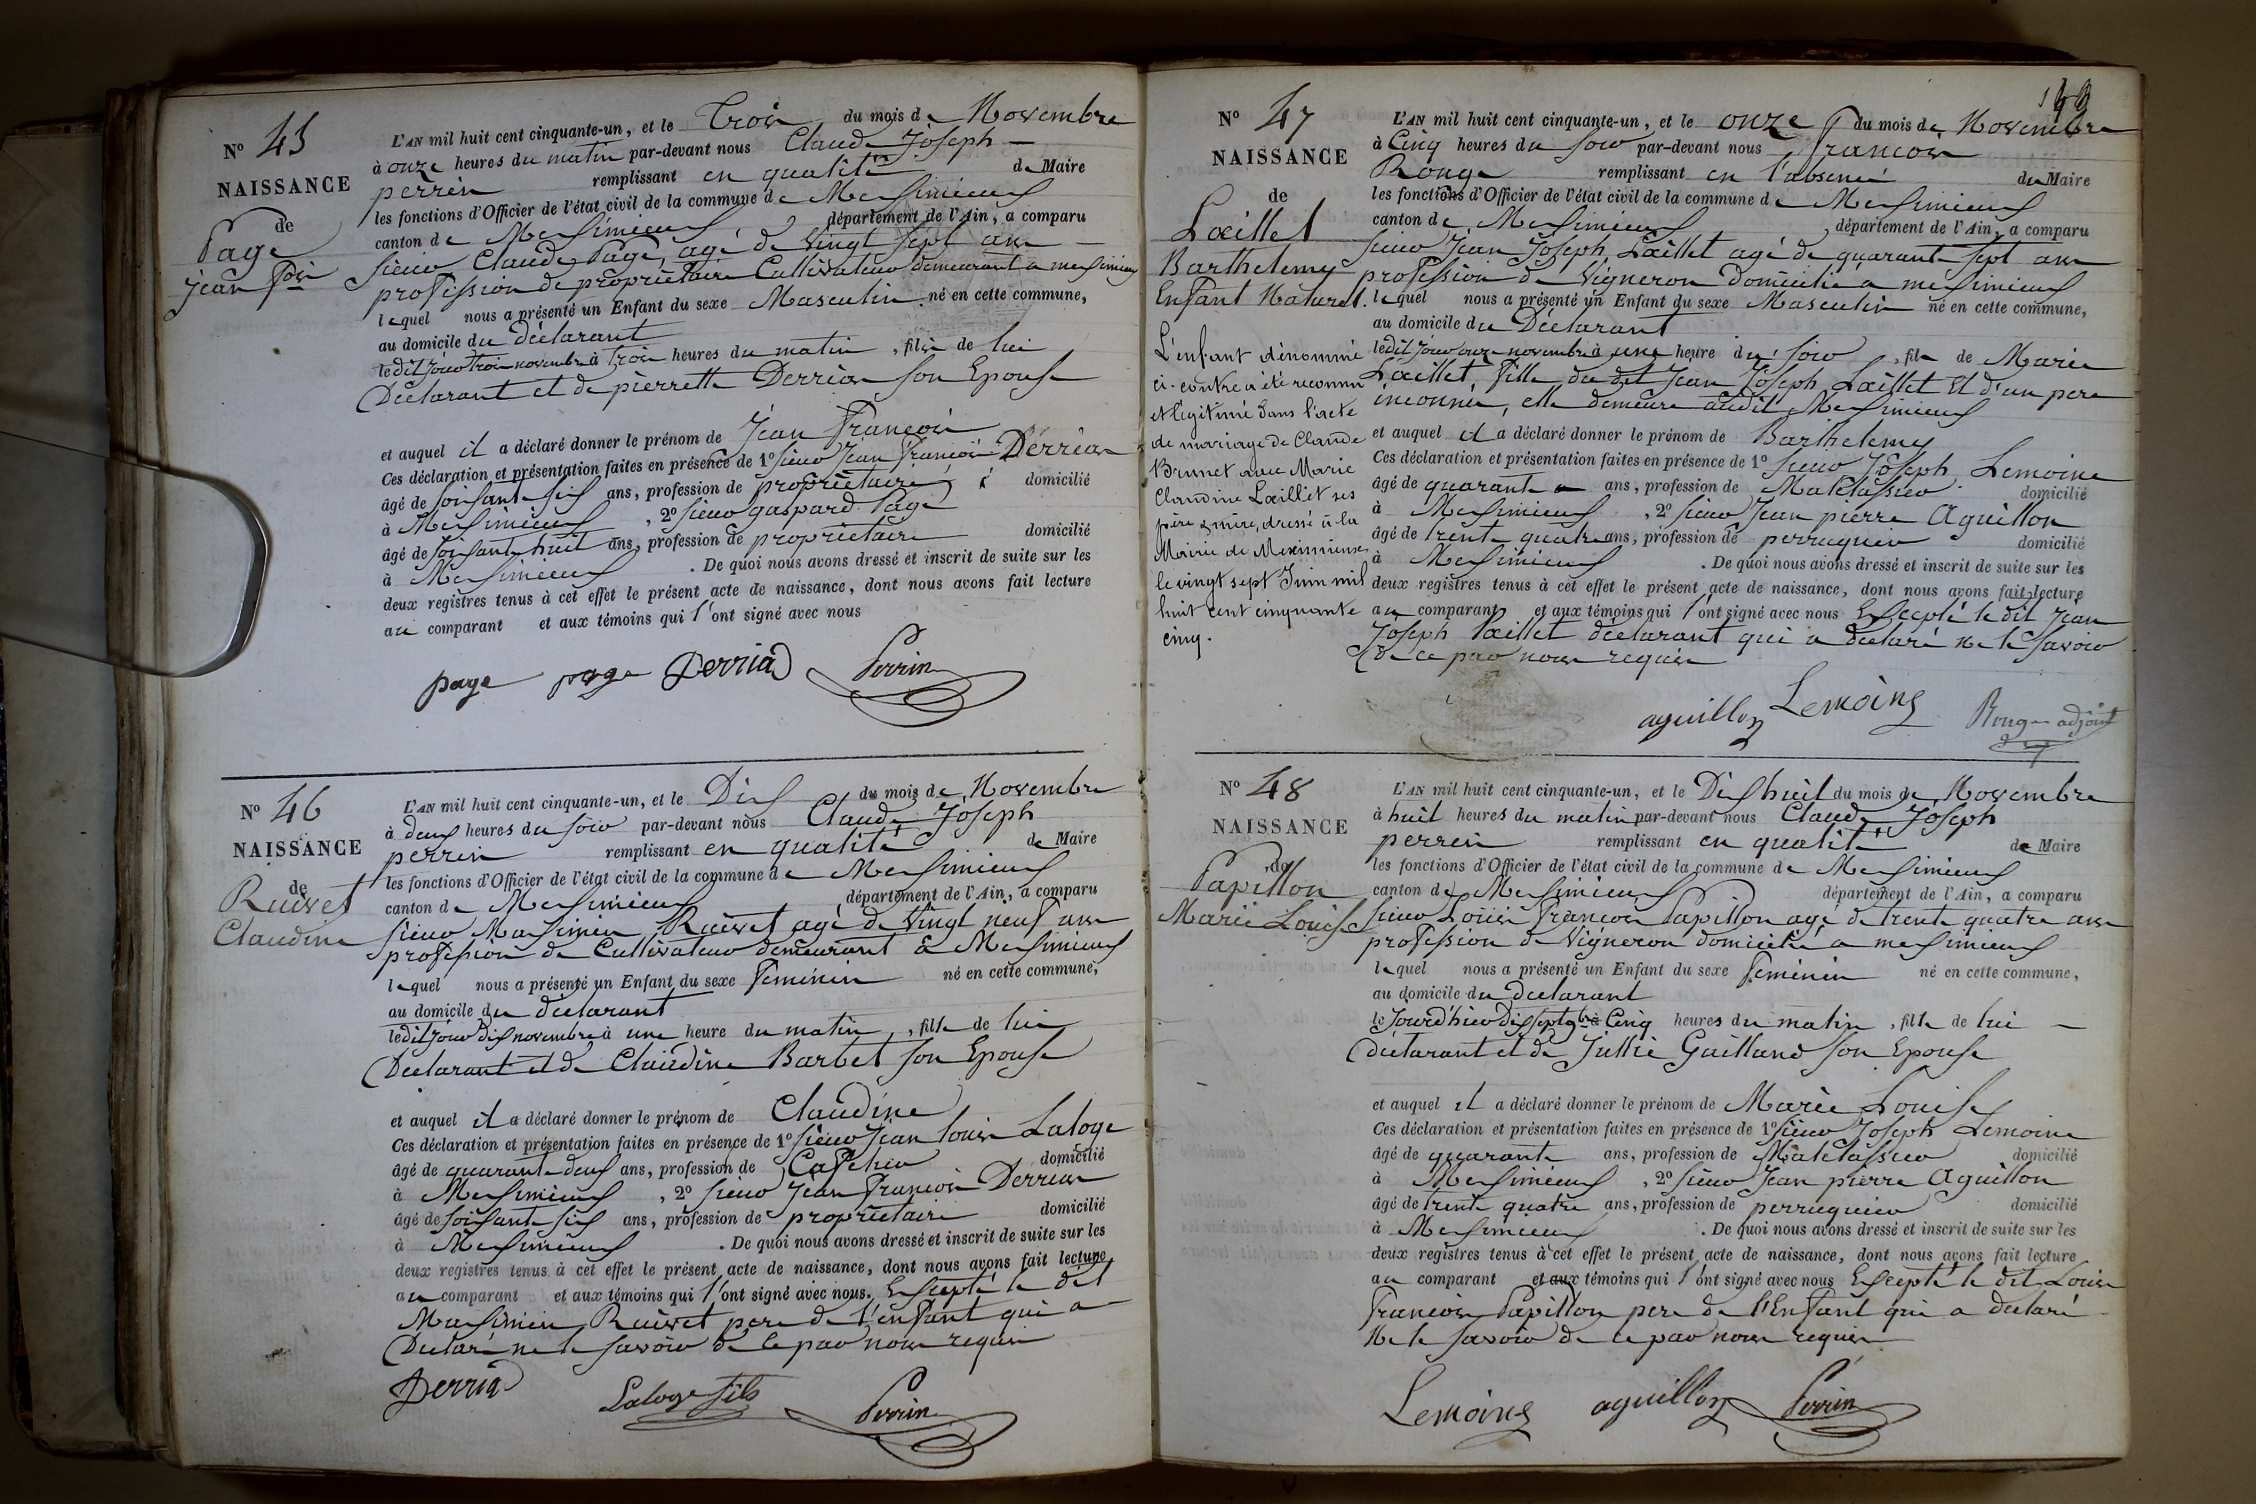 N° 45
NAISSANCE
de
Page
jean fois
L'AN mil huit cent cinquante-un, et le Trois du mois de Novembre
à onze heures du matin par-devant nous Claude Joseph
perrin remplissant en qualité de Maire
les fonctions d'Officier de l'état civil de la commune de Meximieux
canton de Meximieux département de l'Ain, a comparu
sieur Claude Page, agé de vingt sept ans
profession de propriétaire Cultivateur demeurant a meximieux
lequel nous a présenté un Enfant du sexe Masculin né en cette commune,
au domicile du déclarant
ledit jour trois novembre à trois heures du matin, fils de lui
Déclarant et de pierrette Derrias son Epouse
et auquel il a déclaré donner le prénom de Jean François
Ces déclaration et présentation faites en présence de 1° sieur Jean François Derrias
âgé de soixante six ans, profession de propriétaire domicilié
à Meximieux, 2° sieur gaspard Page
âgé de soixante huit ans, profession de propriétaire domicilié
à Meximieux. De quoi nous avons dressé et inscrit de suite sur les
deux registres tenus à cet effet le présent acte de naissance, dont nous avons fait lecture
au comparant et aux témoins qui l'ont signé avec nous
page page Derrias Perrin
N° 46
NAISSANCE
de
Ruivet
Claudine
L'AN mil huit cent cinquante-un, et le Dix du mois de Novembre
à deux heures du soir par-devant nous Claude Joseph
perrin remplissant en qualité de Maire
les fonctions d'Officier de l'état civil de la commune de Meximieux
canton de Meximieux département de l'Ain, a comparu
sieur Maximin Ruivet agé de vingt neuf ans
profession de Cultivateur demeurant à Meximieux
lequel nous a présenté un Enfant du sexe Feminin né en cette commune,
au domicile du déclarant
ledit jour dix novembre à une heure du matin, fille de lui
Déclarant et de Claudine Barbet son Epouse
et auquel il a déclaré donner le prénom de Claudine
Ces déclaration et présentation faites en présence de 1° sieur Jean louis Laloge
âgé de quarante deux ans, profession de Caffetier domicilié
à Meximieux, 2° sieur Jean François Derrias
âgé de soixante six ans, profession de propriétaire domicilié
à Meximieux. De quoi nous avons dressé et inscrit de suite sur les
deux registres tenus à cet effet le présent acte de naissance, dont nous avons fait lecture
au comparant et aux témoins qui l'ont signé avec nous. Excepté le dit
Maximin Ruivet pere de l'enfant qui a
Déclaré ne le savoir de ce par nous requis
Derrias Laloge fils Perrin
N° 47
NAISSANCE
de
Lœillet
Barthelemy
Enfant Naturel.
L'enfant dénommé
ci-contre a été reconnu
et légitimé dans l'acte
de mariage de Claude
Brunet avec Marie
Claudine Lœillet ses
père & mère, dressé à la
Mairie de Meximieux
le vingt sept Juin mil
huit cent cinquante
cinq.
L'AN mil huit cent cinquante-un, et le onze du mois de Novembre
à Cinq heures du soir par-devant nous François
Rouge remplissant en l'absence du Maire
les fonctions d'Officier de l'état civil de la commune de Meximieux
canton de Meximieux département de l'Ain, a comparu
sieur Jean Joseph Lœillet agé de quarante sept ans
profession de Vigneron domicilié a meximieux
lequel nous a présenté un Enfant du sexe Masculin né en cette commune,
au domicile du Déclarant
ledit jour onze novembre à une heure du soir, fils de Marie
Lœillet, fille du dit Jean Joseph Lœillet Et d'un pere
inconnu, elle demeure audit Meximieux
et auquel il a déclaré donner le prénom de Barthelemy
Ces déclaration et présentation faites en présence de 1° sieur Joseph Lemoine
âgé de quarante ans, profession de Matelassier domicilié
à Meximieux, 2° sieur Jean pierre Aguillon
âgé de trente quatre ans, profession de perruquier domicilié
à Meximieux. De quoi nous avons dressé et inscrit de suite sur les
deux registres tenus à cet effet le présent acte de naissance, dont nous avons fait lecture
au comparant et aux témoins qui l'ont signé avec nous Excepté le dit Jean
Joseph Lœillet déclarant qui a déclaré ne le savoir
de ce par nous requis
aguillon Lemoine Rouge adjoint
N° 48
NAISSANCE
de
Papillon
Marie Louise
L'AN mil huit cent cinquante-un, et le Dix huit du mois de Novembre
à huit heures du matin par-devant nous Claude Joseph
perrin remplissant en qualité de Maire
les fonctions d'Officier de l'état civil de la commune de Meximieux
canton de Meximieux département de l'Ain, a comparu
sieur Louis François Papillon agé de trente quatre ans
profession de Vigneron domicilié a meximieux
lequel nous a présenté un Enfant du sexe Feminin né en cette commune,
au domicile du declarant
le jourd'hier dix sept 9bre à Cinq heures du matin, fille de lui
déclarant et de Jullie Guilland son Epouse
et auquel il a déclaré donner le prénom de Marie Louise
Ces déclaration et présentation faites en présence de 1° sieur Joseph Lemoine
âgé de quarante ans, profession de Matelassier domicilié
à Meximieux, 2° sieur Jean pierre Aguillon
âgé de trente quatre ans, profession de perruquier domicilié
à Meximieux. De quoi nous avons dressé et inscrit de suite sur les
deux registres tenus à cet effet le présent acte de naissance, dont nous avons fait lecture
au comparant et aux témoins qui l'ont signé avec nous Excepté le dit Louis
François Papillon pere de l'Enfant qui a declaré
Ne le savoir de ce par nous requis
Lemoine aguillon Perrin